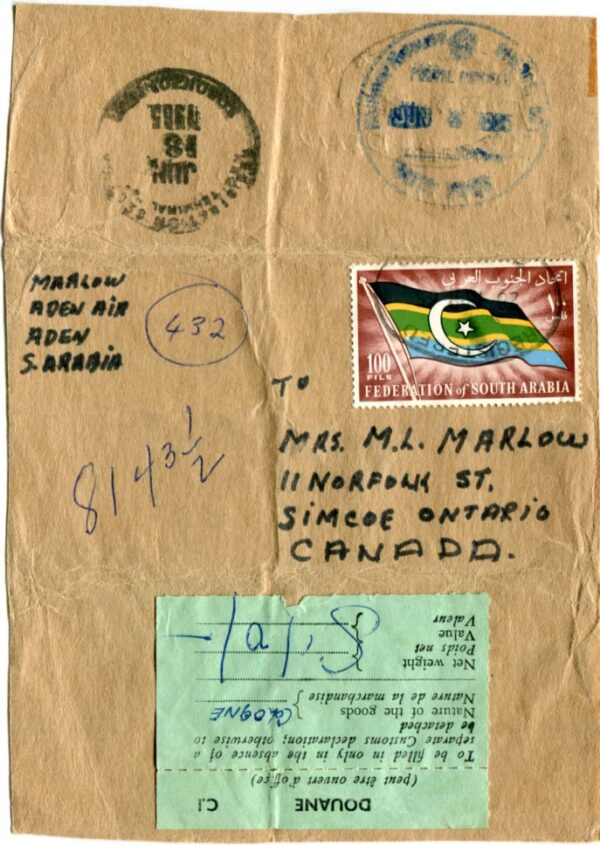 JUN
18
MARLOW
ADEN AIR
ADEN
S. ARABIA
432
8143 1/2
اتحاد الجنوب العربي
١٠٠
فلس
100
FILS
FEDERATION of SOUTH ARABIA
TO
MRS. M.L. MARLOW
11 NORFOLK ST.
SIMCOE ONTARIO
CANADA.
DOUANE C.1
(peut être ouvert d'office)
To be filled in only in the absence of a
separate Customs declaration; otherwise to
be detached
Nature of the goods
Nature de la marchandise
COLOGNE
Net weight
Poids net
Value
Valeur